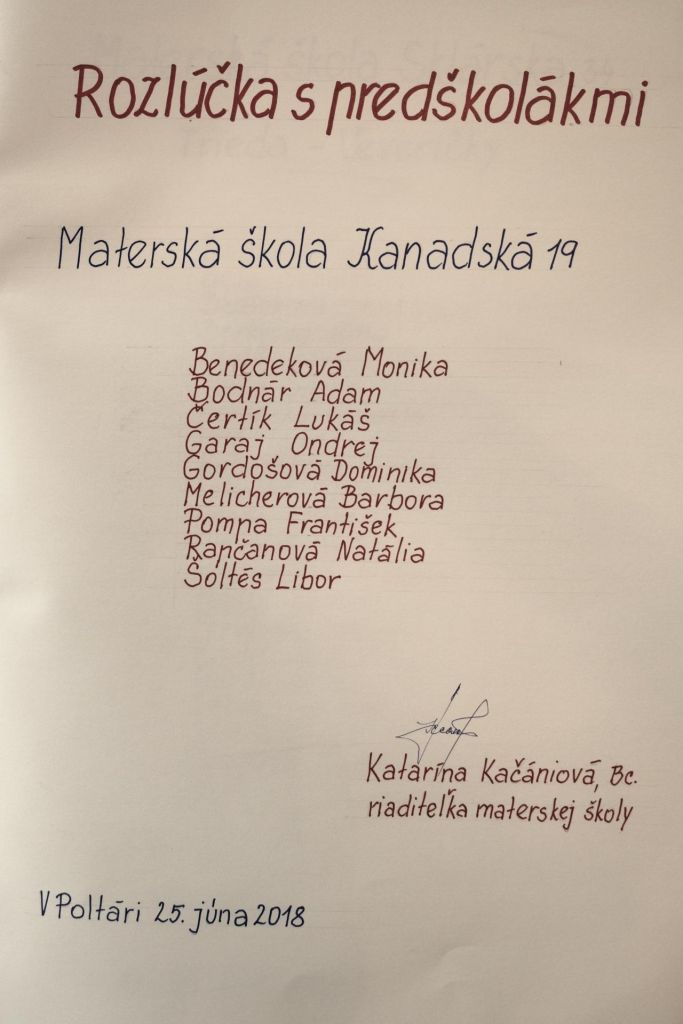 Rozlúčka s predškolákmi
Materská škola Kanadská 19
Benedeková Monika
Bodnár Adam
Čertík Lukáš
Garaj Ondrej
Gordošová Dominika
Melicherová Barbora
Pompa František
Rapčanová Natália
Šoltés Libor
Katarína Kačániová, Bc.
riaditeľka materskej školy
V Poltári 25. júna 2018